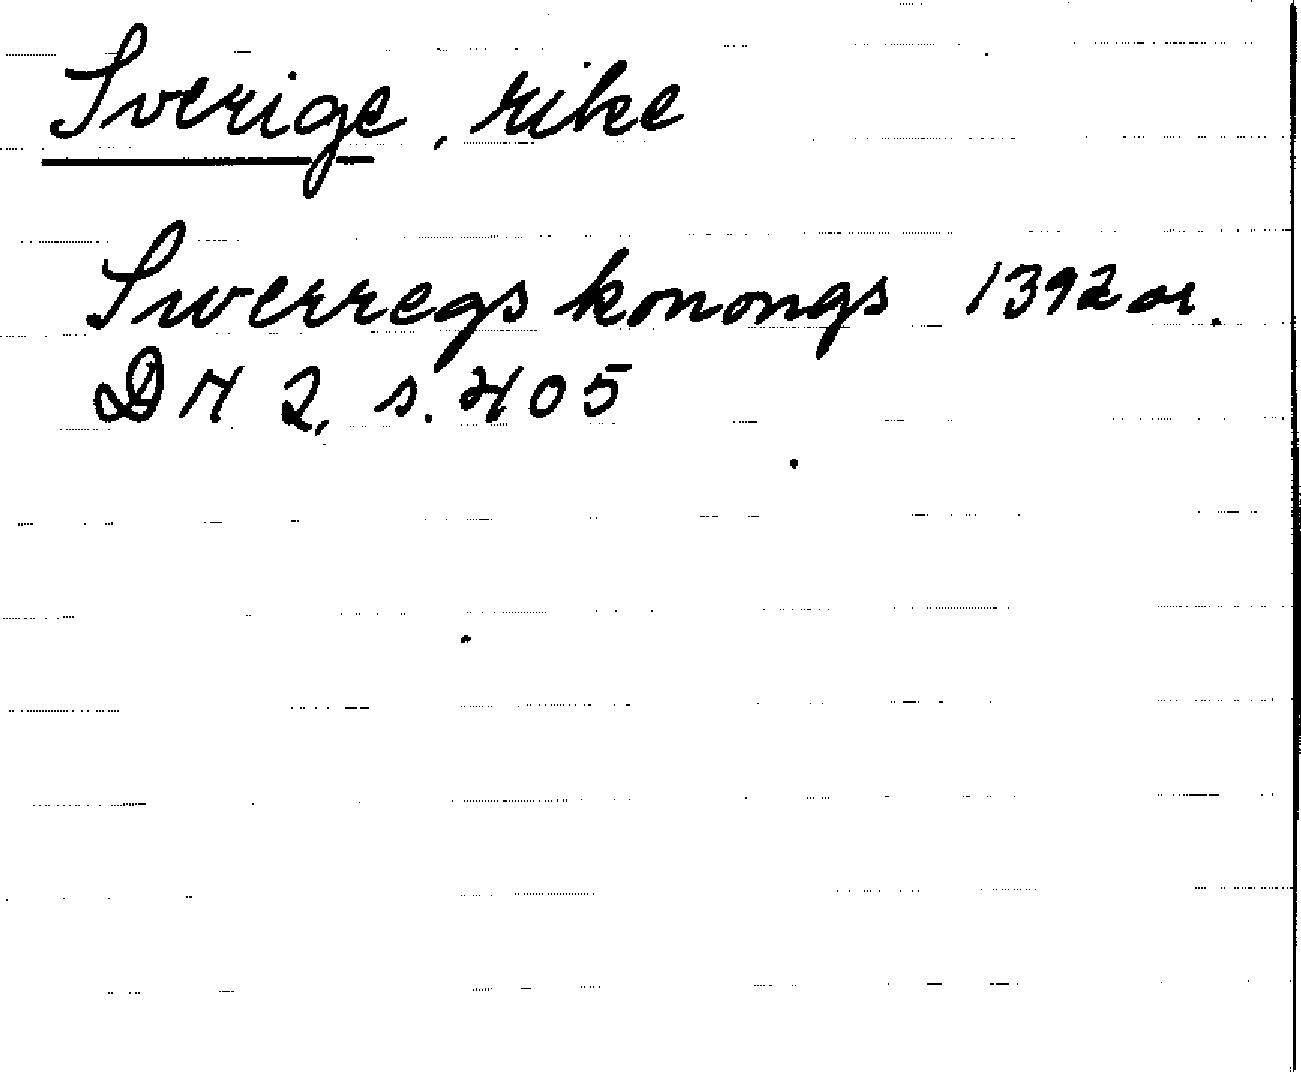 Sverige, rike
Swerregs konongs 1392 or.
DN 2, s. 405